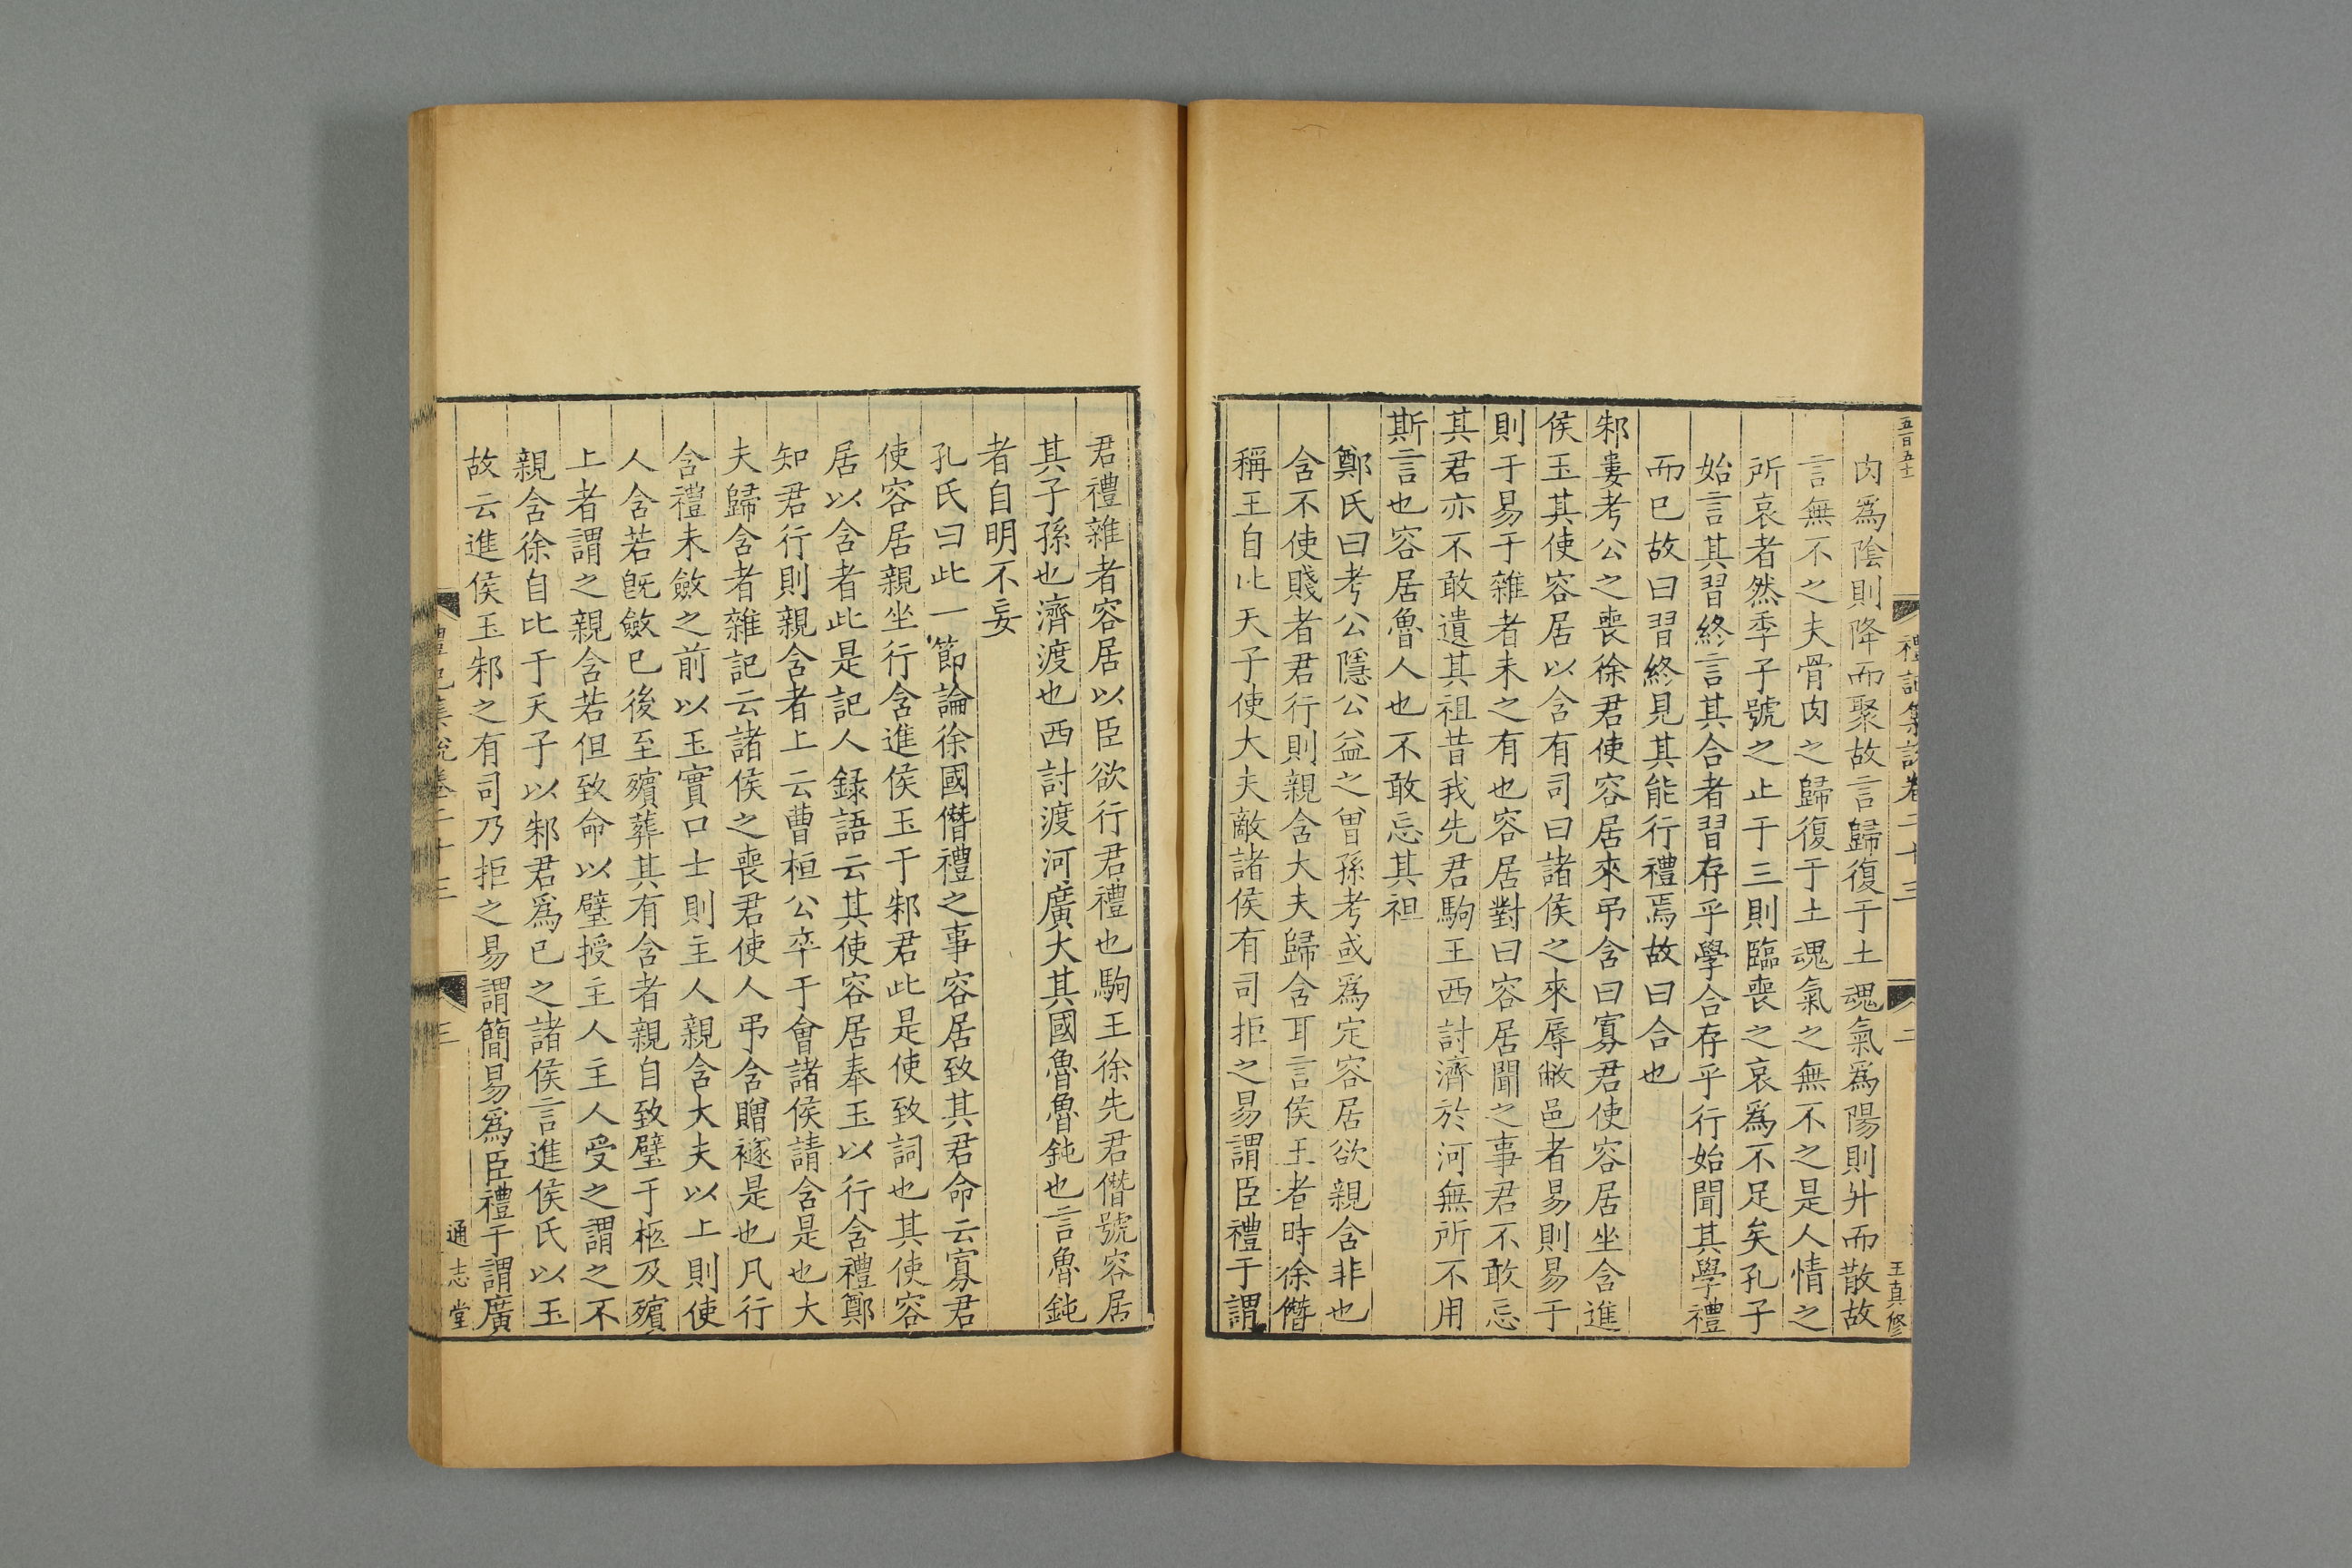 五百五十
禮記集說卷二十三
二
王真修
肉爲陰則降而聚故言歸復于土魂氣爲陽則升而散故
言無不之夫骨肉之歸復于土魂氣之無不之是人情之
所哀者然季子號之止于三則臨喪之哀爲不足矣孔子
始言其習終言其合者習存乎學合存乎行始聞其學禮
而已故曰習終見其能行禮焉故曰合也
邾婁考公之喪徐君使容居來弔含曰寡君使容居坐含進
侯玉其使容居以含有司曰諸侯之來辱敝邑者易則易于
則于易于雜者未之有也容居對曰容居聞之事君不敢忘
其君亦不敢遺其祖昔我先君駒王西討濟於河無所不用
斯言也容居魯人也不敢忘其祖
鄭氏曰考公隱公益之曾孫考或爲定容居欲親含非也
含不使賤者君行則親含大夫歸含耳言侯玉者時徐僭
稱王自比天子使大夫敵諸侯有司拒之易謂臣禮于謂
君禮雜者容居以臣欲行君禮也駒王徐先君僭號容居
其子孫也濟渡也西討渡河廣大其國魯魯鈍也言魯鈍
者自明不妄
孔氏曰此一節論徐國僭禮之事容居致其君命云寡君
使容居親坐行含進侯玉于邾君此是使致詞也其使容
居以含者此是記人錄語云其使容居奉玉以行含禮鄭
知君行則親含者上云曹桓公卒于會諸侯請含是也大
夫歸含者雜記云諸侯之喪君使人弔含贈襚是也凡行
含禮未斂之前以玉實口士則主人親含大夫以上則使
人含若旣斂已後至殯葬其有含者親自致璧于柩及殯
上者謂之親含若但致命以璧授主人主人受之謂之不
親含徐自比于天子以邾君爲已之諸侯言進侯氏以玉
故云進侯玉邾之有司乃拒之易謂簡易爲臣禮于謂廣
禮記集說卷二十三
三
通志堂